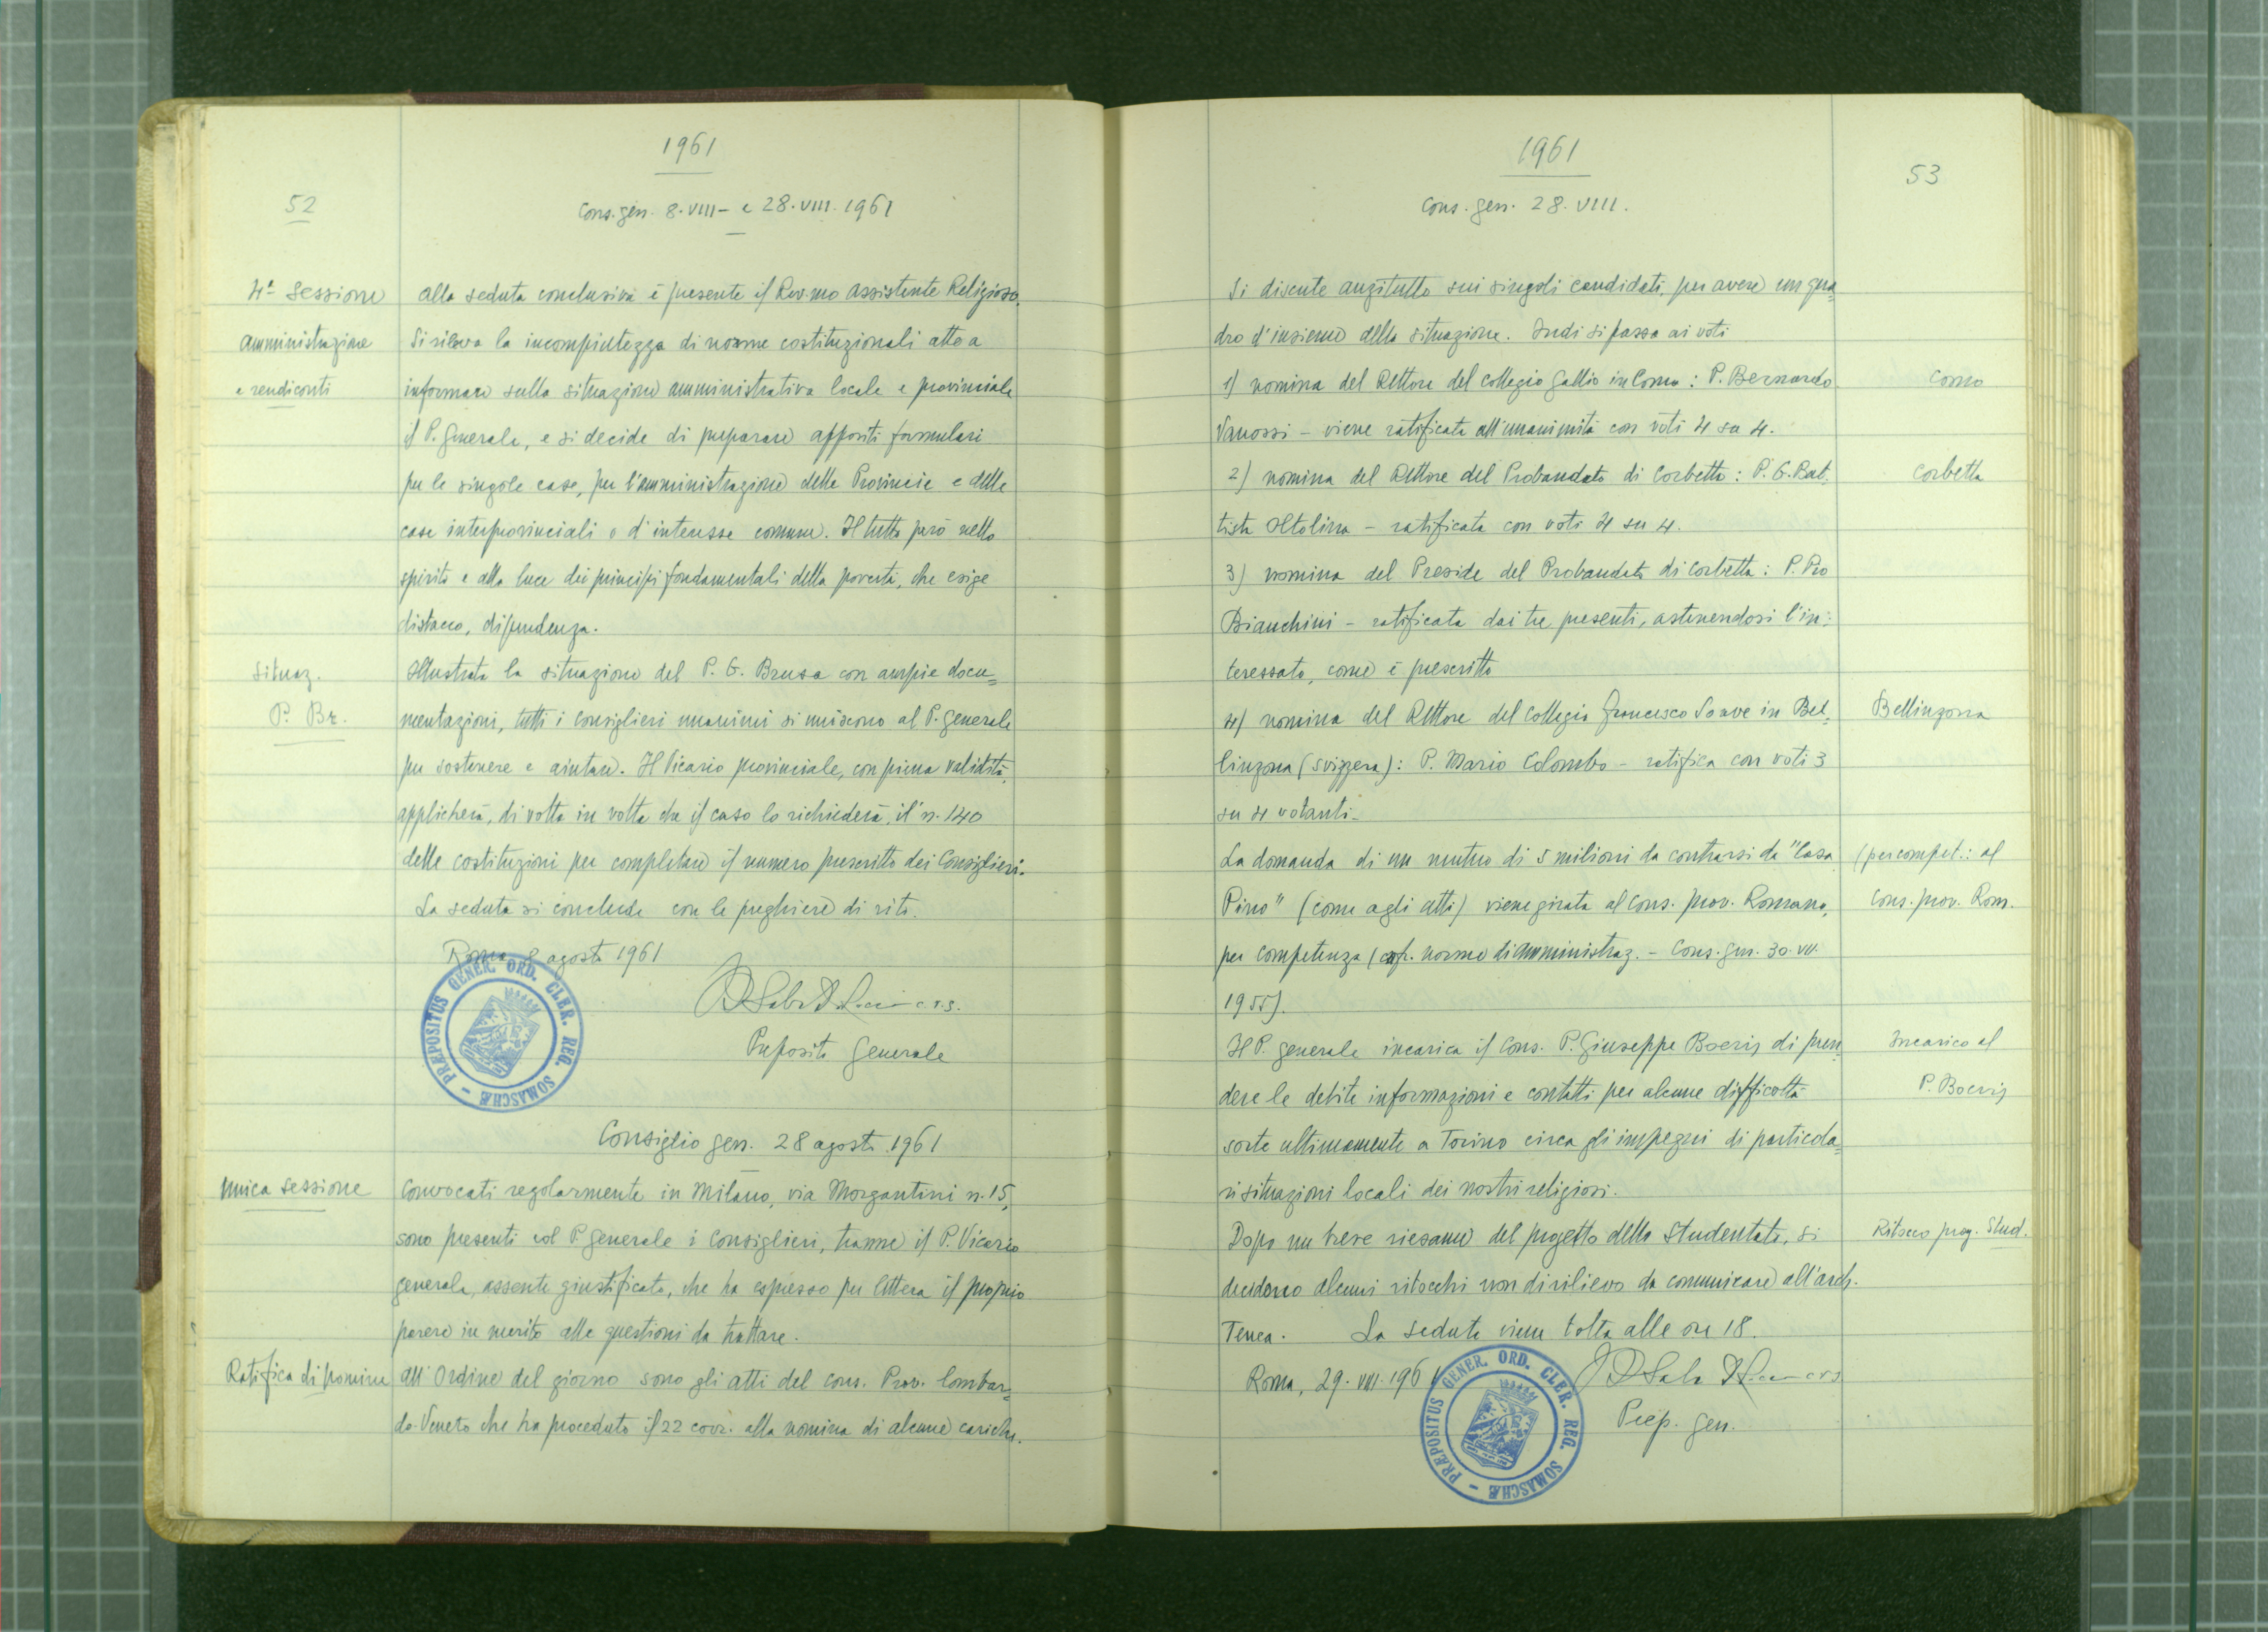 1961
52
Cons. gen. 8. VIII - e 28. VIII. 1961
4ª Sessione
amministrazione
e rendiconti
Alla seduta conclusiva è presente il Rev.mo Assistente Religioso.
Si rileva la incompiutezza di norme costituzionali atte a
informare sulla situazione amministrativa locale e provinciale
il P. Generale, e si decide di preparare appositi formulari
per le singole case, per l'amministrazione delle Provincie e delle
case interprovinciali o d'interesse comune. Il tutto però nello
spirito e alla luce dei principi fondamentali della povertà, che esige
distacco, dipendenza.
Situaz.
P. Br.
Illustrata la situazione del P. G. Brusa con ampie docu=
mentazioni, tutti i Consiglieri unanimi si uniscono al P. Generale
per sostenere e aiutare. Il Vicario provinciale, con piena validità,
applicherà, di volta in volta che il caso lo richiederà, il n. 140
delle costituzioni per completare il numero prescritto dei Consiglieri.
La seduta si conclude con le preghiere di rito.
Roma 8 agosto 1961
c.r.s.
Preposito Generale
PRÆPOSITUS GENER. ORD. CLER. REG. SOMASCHÆ
Consiglio gen. 28 agosto 1961
Unica sessione
Convocati regolarmente in Milano, via Morgantini n. 15,
sono presenti col P. Generale i Consiglieri, tranne il P. Vicario
generale, assente giustificato, che ha espresso per lettera il proprio
parere in merito alle questioni da trattare.
Ratifica di nomine
All'Ordine del giorno sono gli atti del cons. Prov. lombar=
do-Veneto che ha proceduto il 22 corr. alla nomina di alcune cariche.
1961
53
Cons. gen. 28. VIII.
Si discute anzitutto sui singoli candidati, per avere un qua=
dro d'insieme della situazione. Indi si passa ai voti
1) nomina del Rettore del collegio Gallio in Como: P. Bernardo
Como
Vanossi - viene ratificata all'unanimità con voti 4 su 4.
2) nomina del Rettore del Probandato di Corbetta: P. G. Bat.
Corbetta
tista Oltolina - ratificata con voti 4 su 4.
3) nomina del Preside del Probandato di Corbetta: P. Pio
Bianchini - ratificata dai tre presenti, astenendosi l'in:
teressato, come è prescritto
4) nomina del Rettore del Collegio Francesco Soave in Bel.
Bellinzona
linzona (Svizzera): P. Mario Colombo - ratifica con voti 3
su 4 votanti.
La domanda di un mutuo di 5 milioni da contrarsi da "Casa
(per compet.: al
Cons. prov. Rom.
Pino" (come agli atti) viene girata al Cons. prov. Romano,
per competenza (cfr. norme di amministraz. - Cons. gen. 30. VII.
1955).
Il P. generale incarica il Cons. P. Giuseppe Boeris di pren=
Incarico al
P. Boeris
dere le debite informazioni e contatti per alcune difficoltà
sorte ultimamente a Torino circa gli impegni di particola=
ri situazioni locali dei nostri religiosi.
Dopo un breve riesame del progetto dello Studentato, si
Ritocco prog. Stud.
decidono alcuni ritocchi non di rilievo da comunicare all'arch.
Tenca. La seduta viene tolta alle ore 18.
Roma, 29. VIII. 1961
c.r.s.
Prep. gen.
PRÆPOSITUS GENER. ORD. CLER. REG. SOMASCHÆ